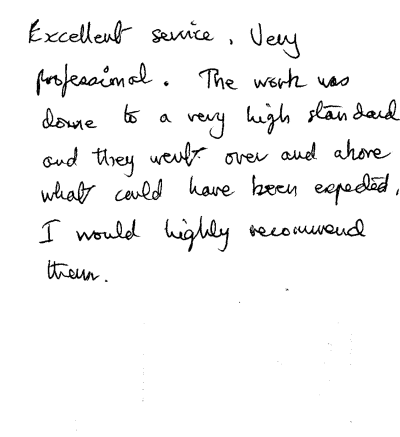 Excellent service. Very
professional. The work was
done to a very high standard
and they went over and above
what could have been expected.
I would highly recommend
them.